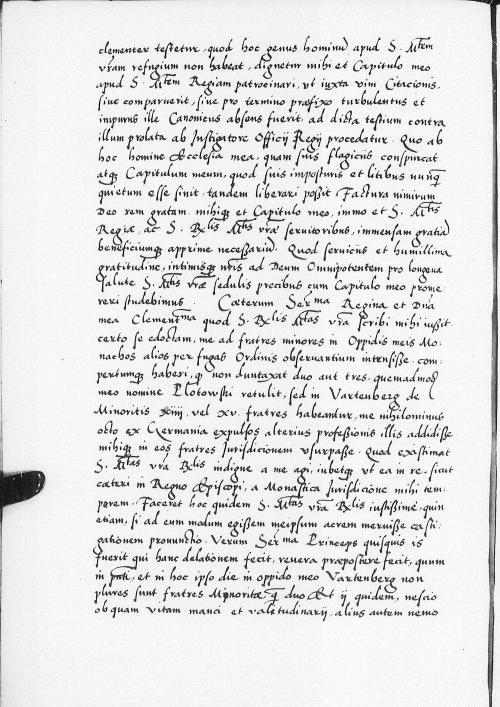 clementer testetur, quod hoc genus hominū apud S. Mtem
vram refugium non habeat, dignetur mihi et Capitulo meo
apud S. Mtem Regiam patrocinari, vt iuxta vim Citacionis,
siue comparuerit, siue pro termino præfixo turbulentus et
impurus ille Canonicus absens fuerit, ad dicta testium contra
illum prolata ab Instigatore Officij Regij procedatur. Quo ab
hoc homine Ecclesia mea, quam suis flagiciis conspurcat
atqȝ Capitulum meum, quod suis imposturis et litibus nunq̄
quietum esse sinit, tandem liberari possit. Factura nimirum
Deo rem gratam, mihiqȝ et Capitulo meo, immo et S. Mtis
Regiæ, ac S. Rlis Mtis vræ seruitoribus, immensam gratiā
beneficiumqȝ apprime necessariū. Quod seruiciis et humillima
gratitudine, intimisqȝ nris ad Deum Omnipotentem pro longeua
salute S. Mtis vræ sedulis precibus cum Capitulo meo prome
reri studebimus. Cæterum Serma Regina et Dna
mea Clementma quod S. Rlis Mtas vra scribi mihi iussit
certo se edoctam, me ad fratres minores in Oppidis meis Mo-
nachos alios per fugas Ordinis obseruantium intrusisse, com-
pertumqȝ haberi, q non duntaxat duo aut tres, quemadmod
meo nomine Plotowski retulit, sed in Vartenberg de
Minoritis xiiij. vel xv. fratres habeantur, me nihilominus
octo ex Germania expulsos alterius professionis illis addidisse
mihiqȝ in eos fratres Jurisdicionem vsurpasse. Quod existimat
S. Mtas vra Rlis indigne a me agi, iubetqȝ vt ea in re, sicut
cæteri in Regno Episcopi, a Monastica Jurisdicione mihi tem-
perem. Faceret hoc quidem S. Mtas vra Rlis iustissime, quin
etiam, si ad eum modum egissem meipsum acrem meruisse casti-
gationem pronunctio. Verum Serma Princeps quisquis is
fuerit qui hanc delationem fecit, reuera præpostere fecit, quum
in pnti, et in hoc ipso die in oppido meo Vartenberg non
plures sunt fratres Minoritæ q̄ duo Et ij quidem, nescio
ob quam vitam manci et valetudinarij, alius autem nemo